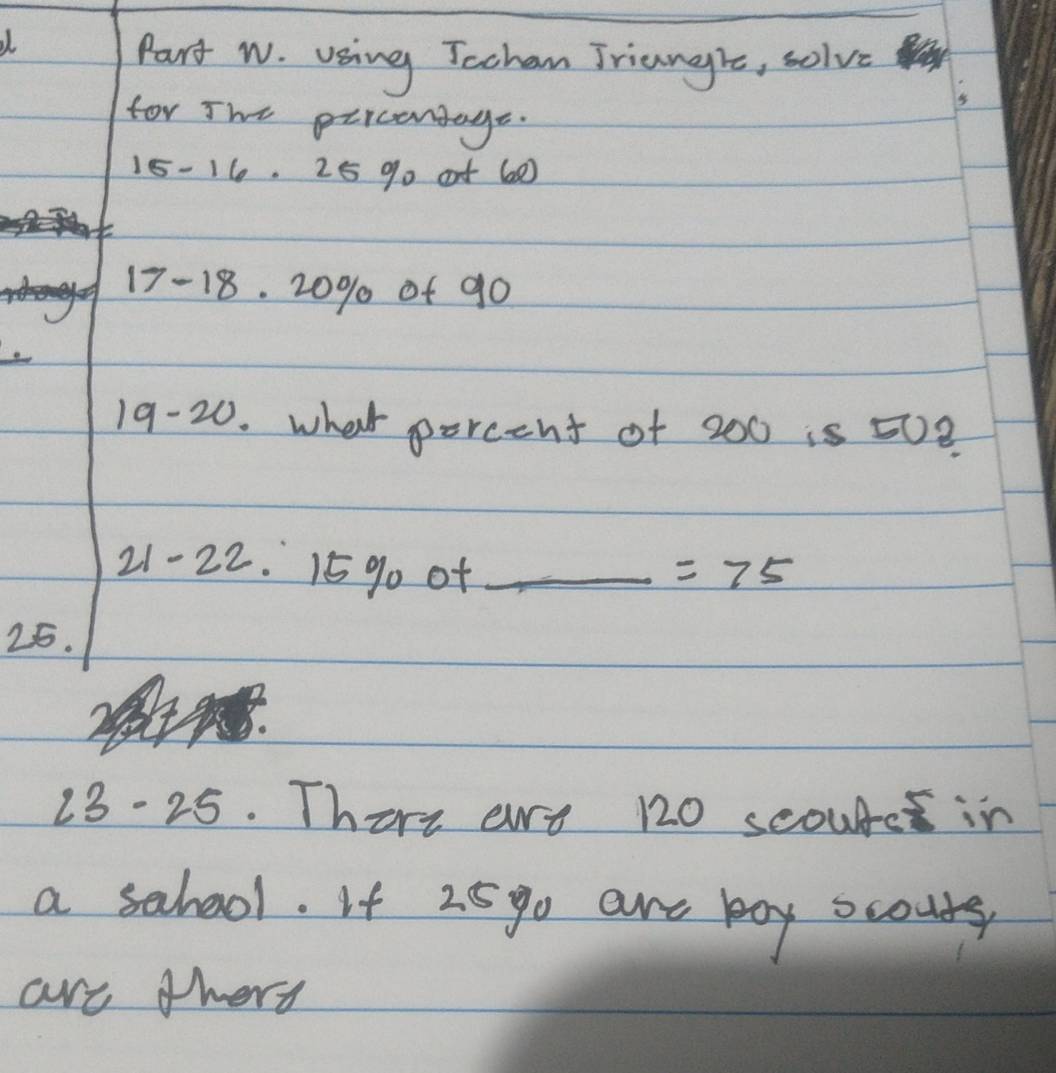 Part IV. Using Techan Triangle, solve
for The percentage.
15-16. 25% of 60
17-18. 20% of 90
19-20. What percent of 200 is 50?
21-22. 15% of ______ = 75
25.
23-25. There are 120 scoutes in
a sahool. If 25% are boy scouts,
are there